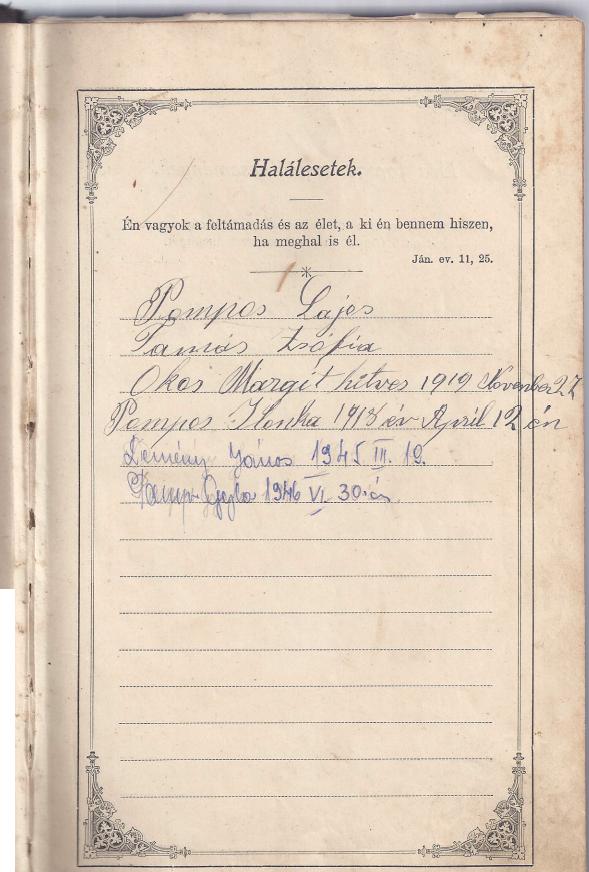 Halálesetek.
Én vagyok a feltámadás és az élet, a ki én bennem hiszen,
ha meghal is él.
Ján. ev. 11, 25.
Pompos Lajos
Tamás Zsófia
Okos Margit hitves 1919 November 27
Pompos Ilonka 1918 év April 12 én
Demény János 1945 III. 19.
1946 VI. 30.án